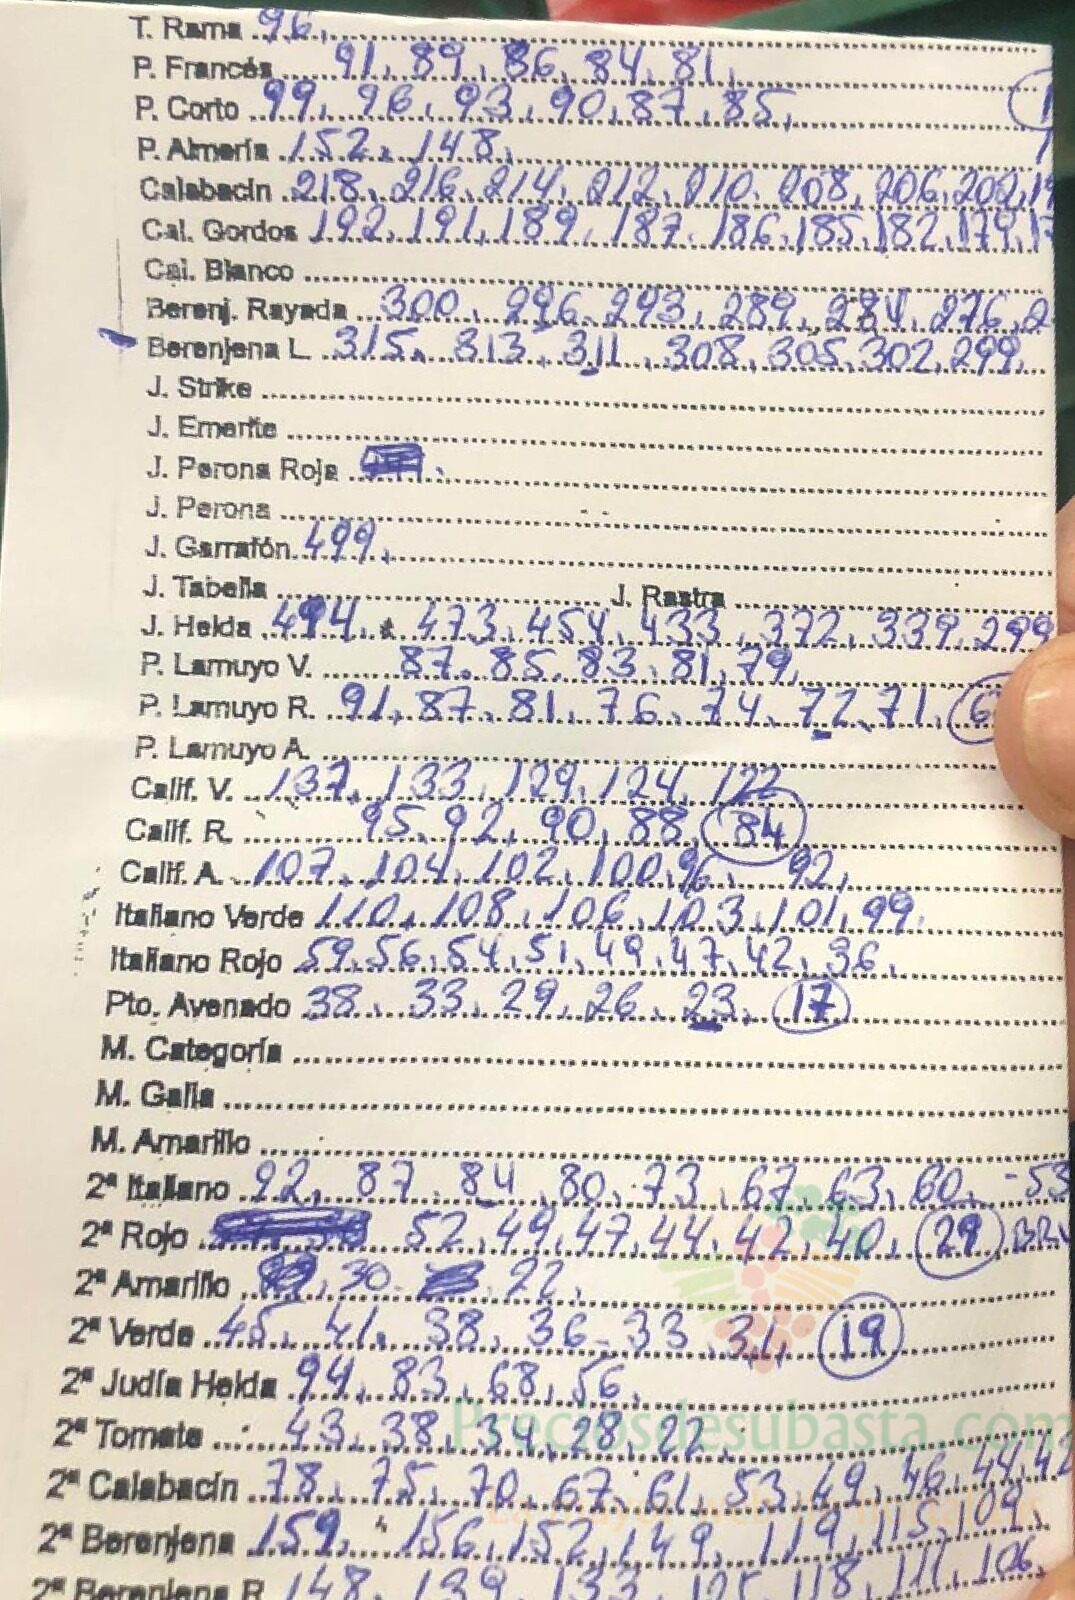 T. Rama 96,
P. Francés 91, 89, 86, 84, 81,
P. Corto 99, 96, 93, 90, 87, 85,
P. Almería 152, 148,
Calabacín 218, 216, 214, 212, 210, 208, 206, 202,
Cal. Gordos 192, 191, 189, 187, 186, 185, 182, 179,
Cal. Blanco
Berenj. Rayada 300, 296, 293, 289, 284, 276,
Berenjena L. 315, 313, 311, 308, 305, 302, 299,
J. Strike
J. Emerite
J. Perona Roja
J. Perona
J. Garrafón 499,
J. Tabella J. Rastra
J. Helda 494, 473, 454, 433, 372, 339, 299
P. Lamuyo V. 87, 85, 83, 81, 79,
P. Lamuyo R. 91, 87, 81, 76, 74, 72, 71,
P. Lamuyo A.
Calif. V. 137, 133, 129, 124, 122
Calif. R. 95, 92, 90, 88, 84
Calif. A. 107, 104, 102, 100, 96, 92,
Italiano Verde 110, 108, 106, 103, 101, 99,
Italiano Rojo 59, 56, 54, 51, 49, 47, 42, 36,
Pto. Avenado 38, 33, 29, 26, 23, 17
M. Categoría
M. Galia
M. Amarillo
2ª Italiano 92, 87, 84, 80, 73, 67, 63, 60, -53
2ª Rojo 52, 49, 47, 44, 42, 40, 29
2ª Amarillo 30, 22,
2ª Verde 45, 41, 38, 36, 33, 31, 19
2ª Judía Helda 94, 83, 68, 56,
2ª Tomate 43, 38, 34, 28, 22,
Preciosdesubasta.com
2ª Calabacín 78, 75, 70, 67, 61, 53, 49, 46, 44, 42
2ª Berenjena 159, 156, 152, 149, 119, 115, 109,
2ª Berenjena R. 148, 139, 133, 125, 118, 111, 106,